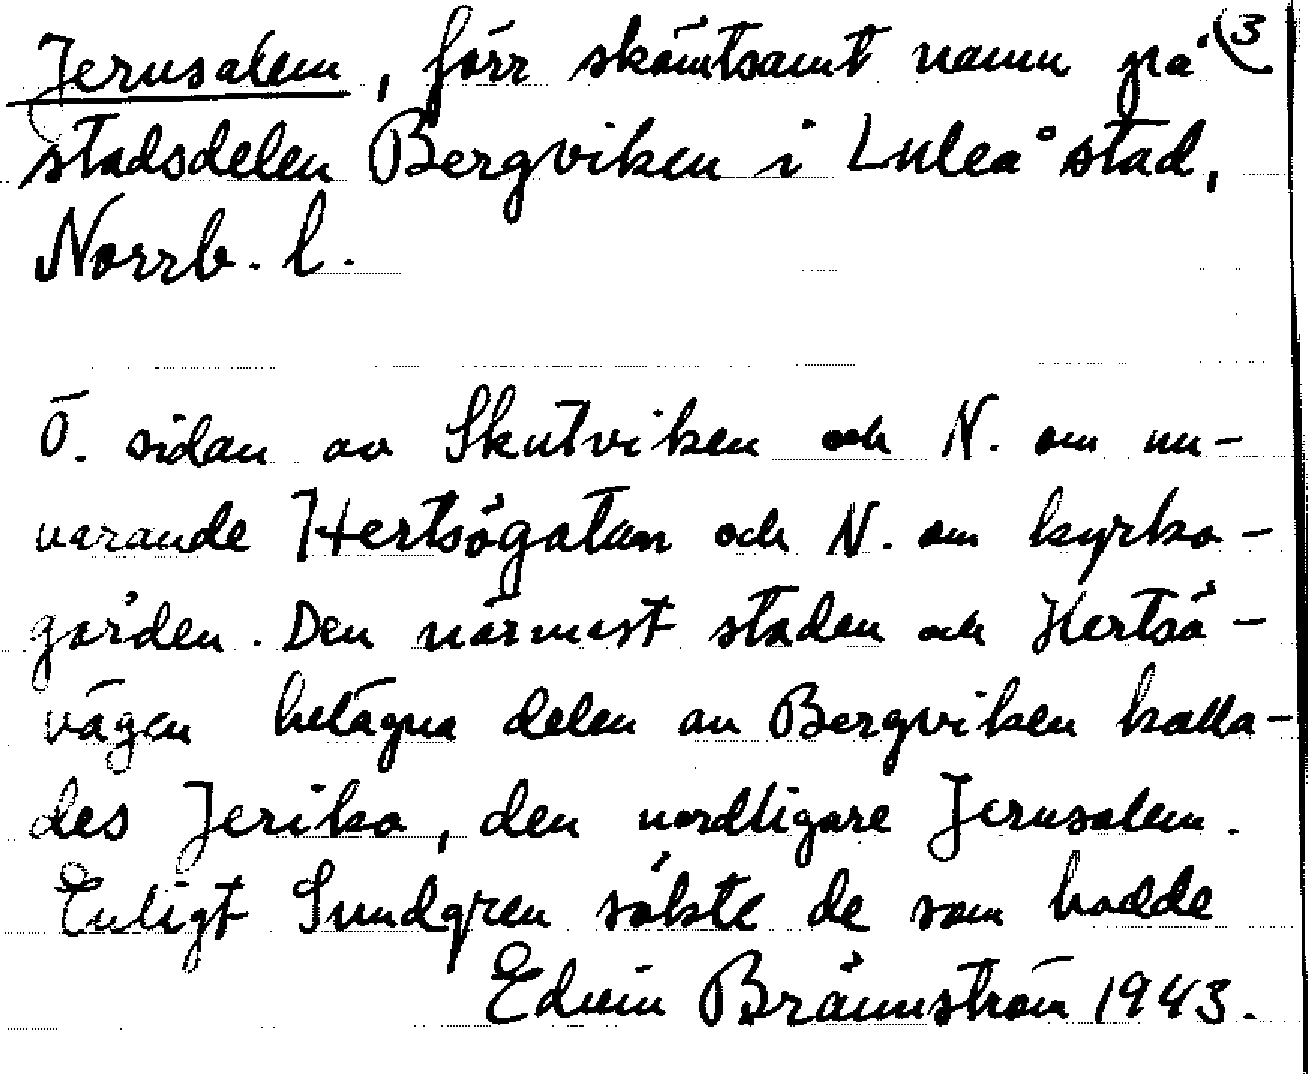 Jerusalem, förr skämtsamt namn på (3
stadsdelen Bergviken i Luleå stad,
Norrb. l.
Ö. sidan av Skutviken och N. om nu-
varande Hertsögatan och N. om kyrko-
gården. Den närmast staden och Hertsö-
vägen belägna delen av Bergviken kalla-
des Jeriko, den nordligare Jerusalem.
Enligt Sundgren sökte de som hadde
Edvin Brännström 1943.